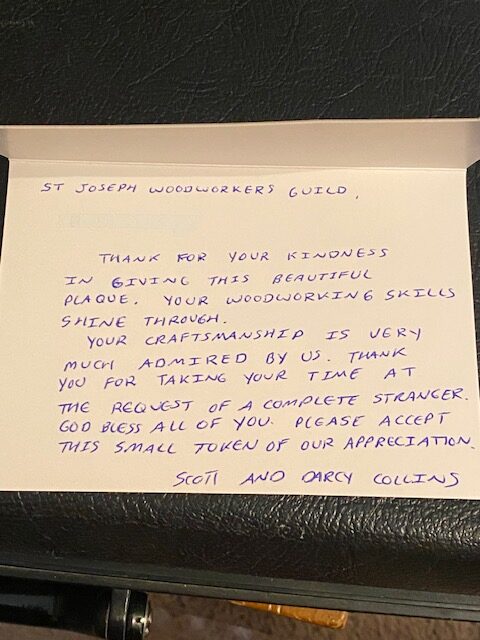 ST JOSEPH WOODWORKERS GUILD,
THANK FOR YOUR KINDNESS
IN GIVING THIS BEAUTIFUL
PLAQUE. YOUR WOODWORKING SKILLS
SHINE THROUGH.
YOUR CRAFTSMANSHIP IS VERY
MUCH ADMIRED BY US. THANK
YOU FOR TAKING YOUR TIME AT
THE REQUEST OF A COMPLETE STRANGER.
GOD BLESS ALL OF YOU. PLEASE ACCEPT
THIS SMALL TOKEN OF OUR APPRECIATION.
SCOTT AND DARCY COLLINS